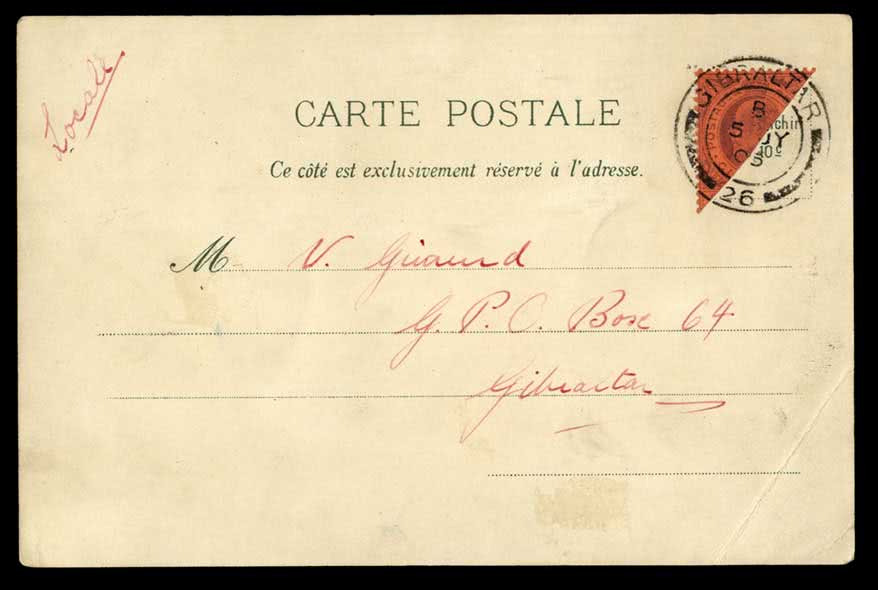 Locale
CARTE POSTALE
Ce côté est exclusivement réservé à l'adresse.
GIBRALTAR
B
JY
26
M V. Giraud
G. P. O. Box 64
Gibraltar